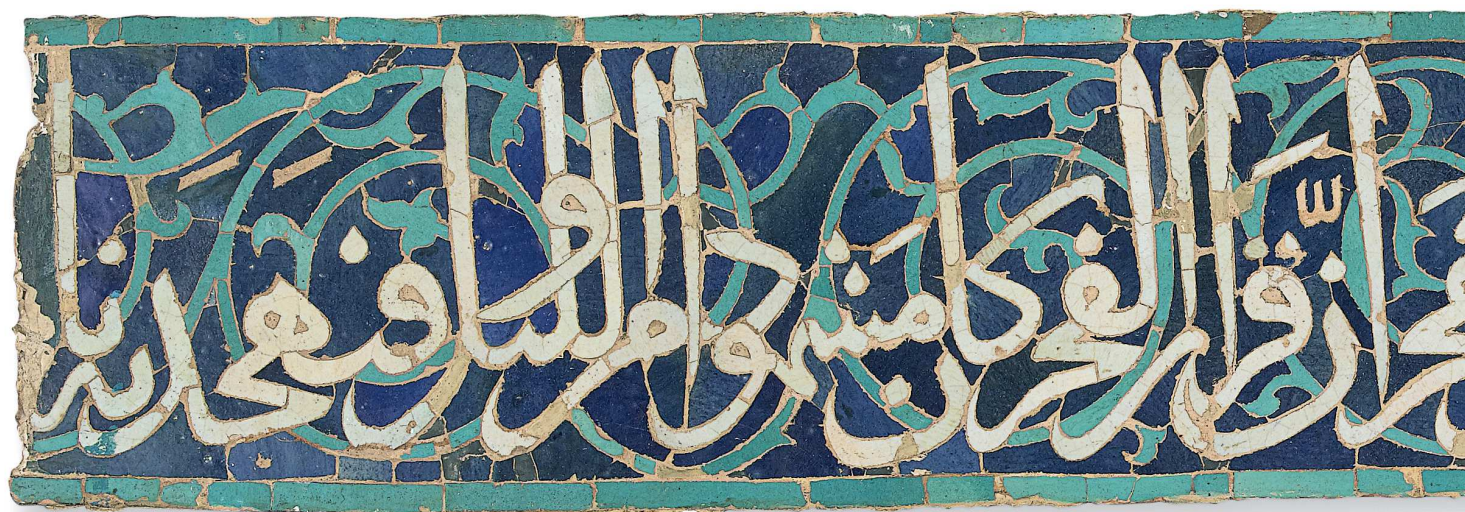 ان قران الفجر كان مشهودا ومن الليل فتهجد به نا